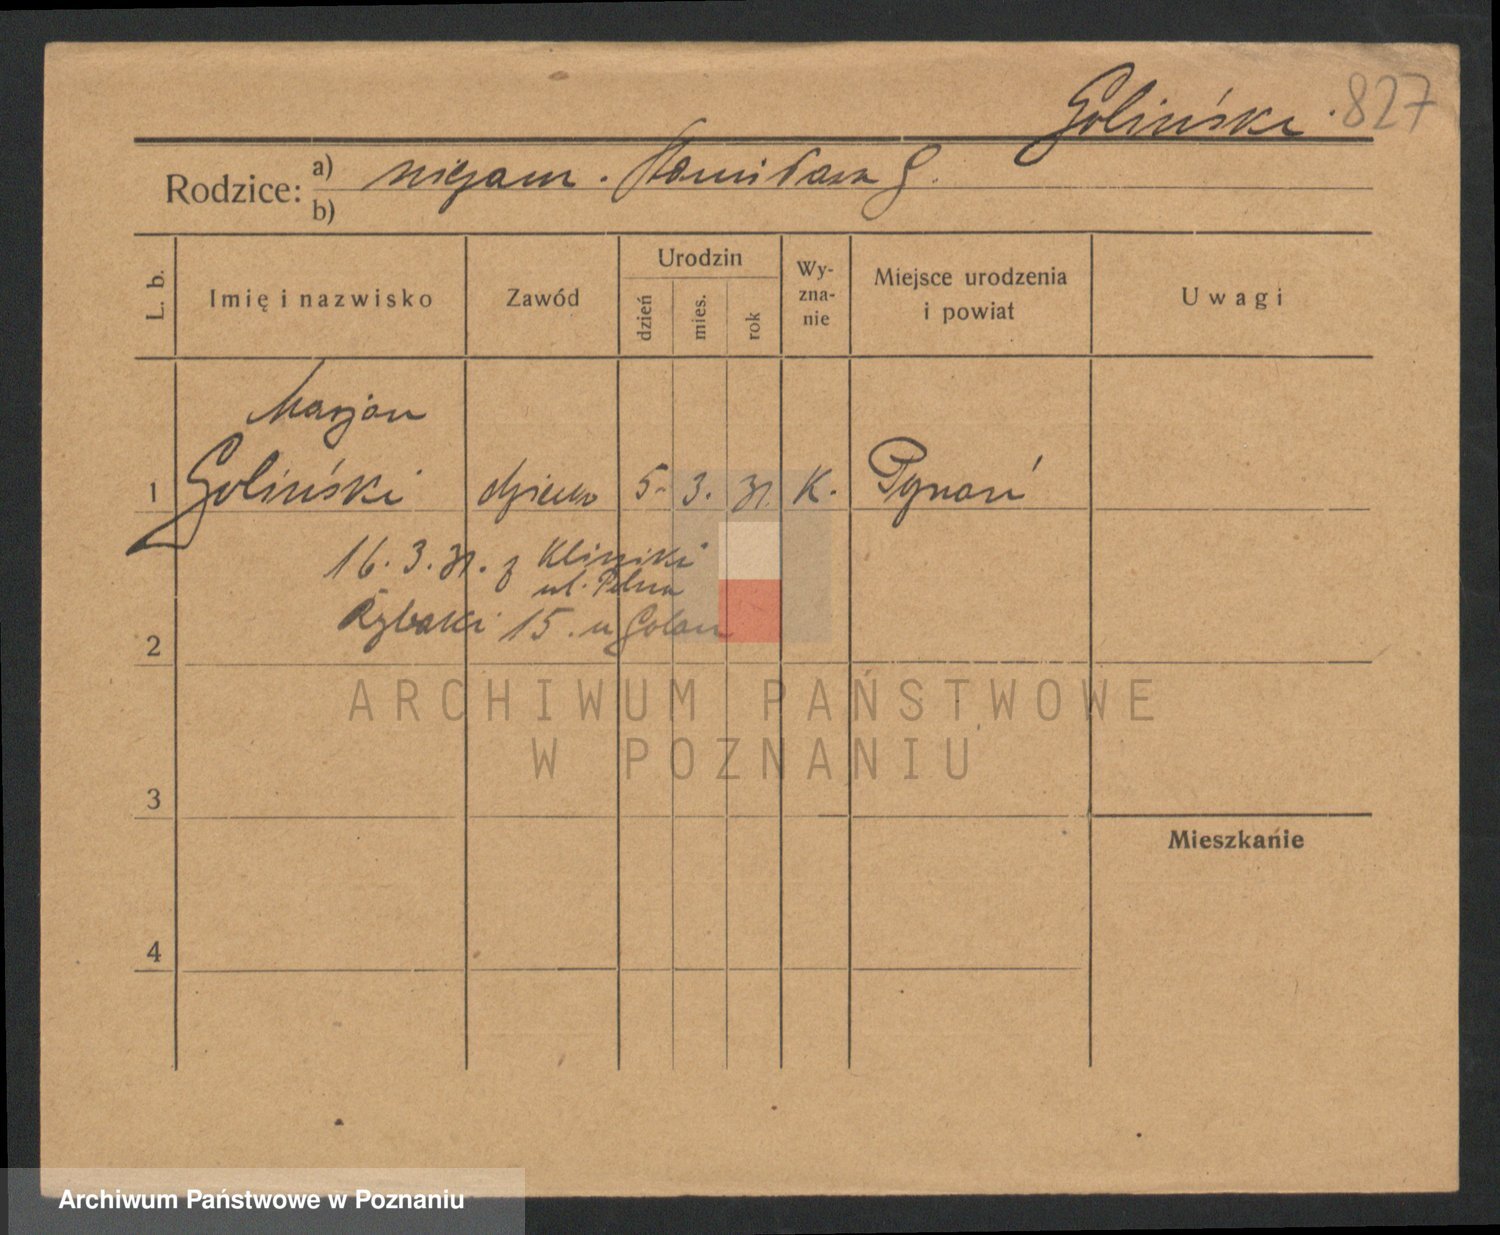 Goliński 827
Rodzice: a) niezam. Stanisława G.
b)
L. b. Imię i nazwisko Zawód Urodzin dzień mies. rok Wy-zna-nie Miejsce urodzenia i powiat Uwagi
Marjan
1 Goliński dziecko 5. 3. 31. K. Poznań
16. 3. 31. z Kliniki
ul. Polna
2 Rybaki 15. u Golan
ARCHIWUM PAŃSTWOWE
W POZNANIU
3
Mieszkanie
4
Archiwum Państwowe w Poznaniu